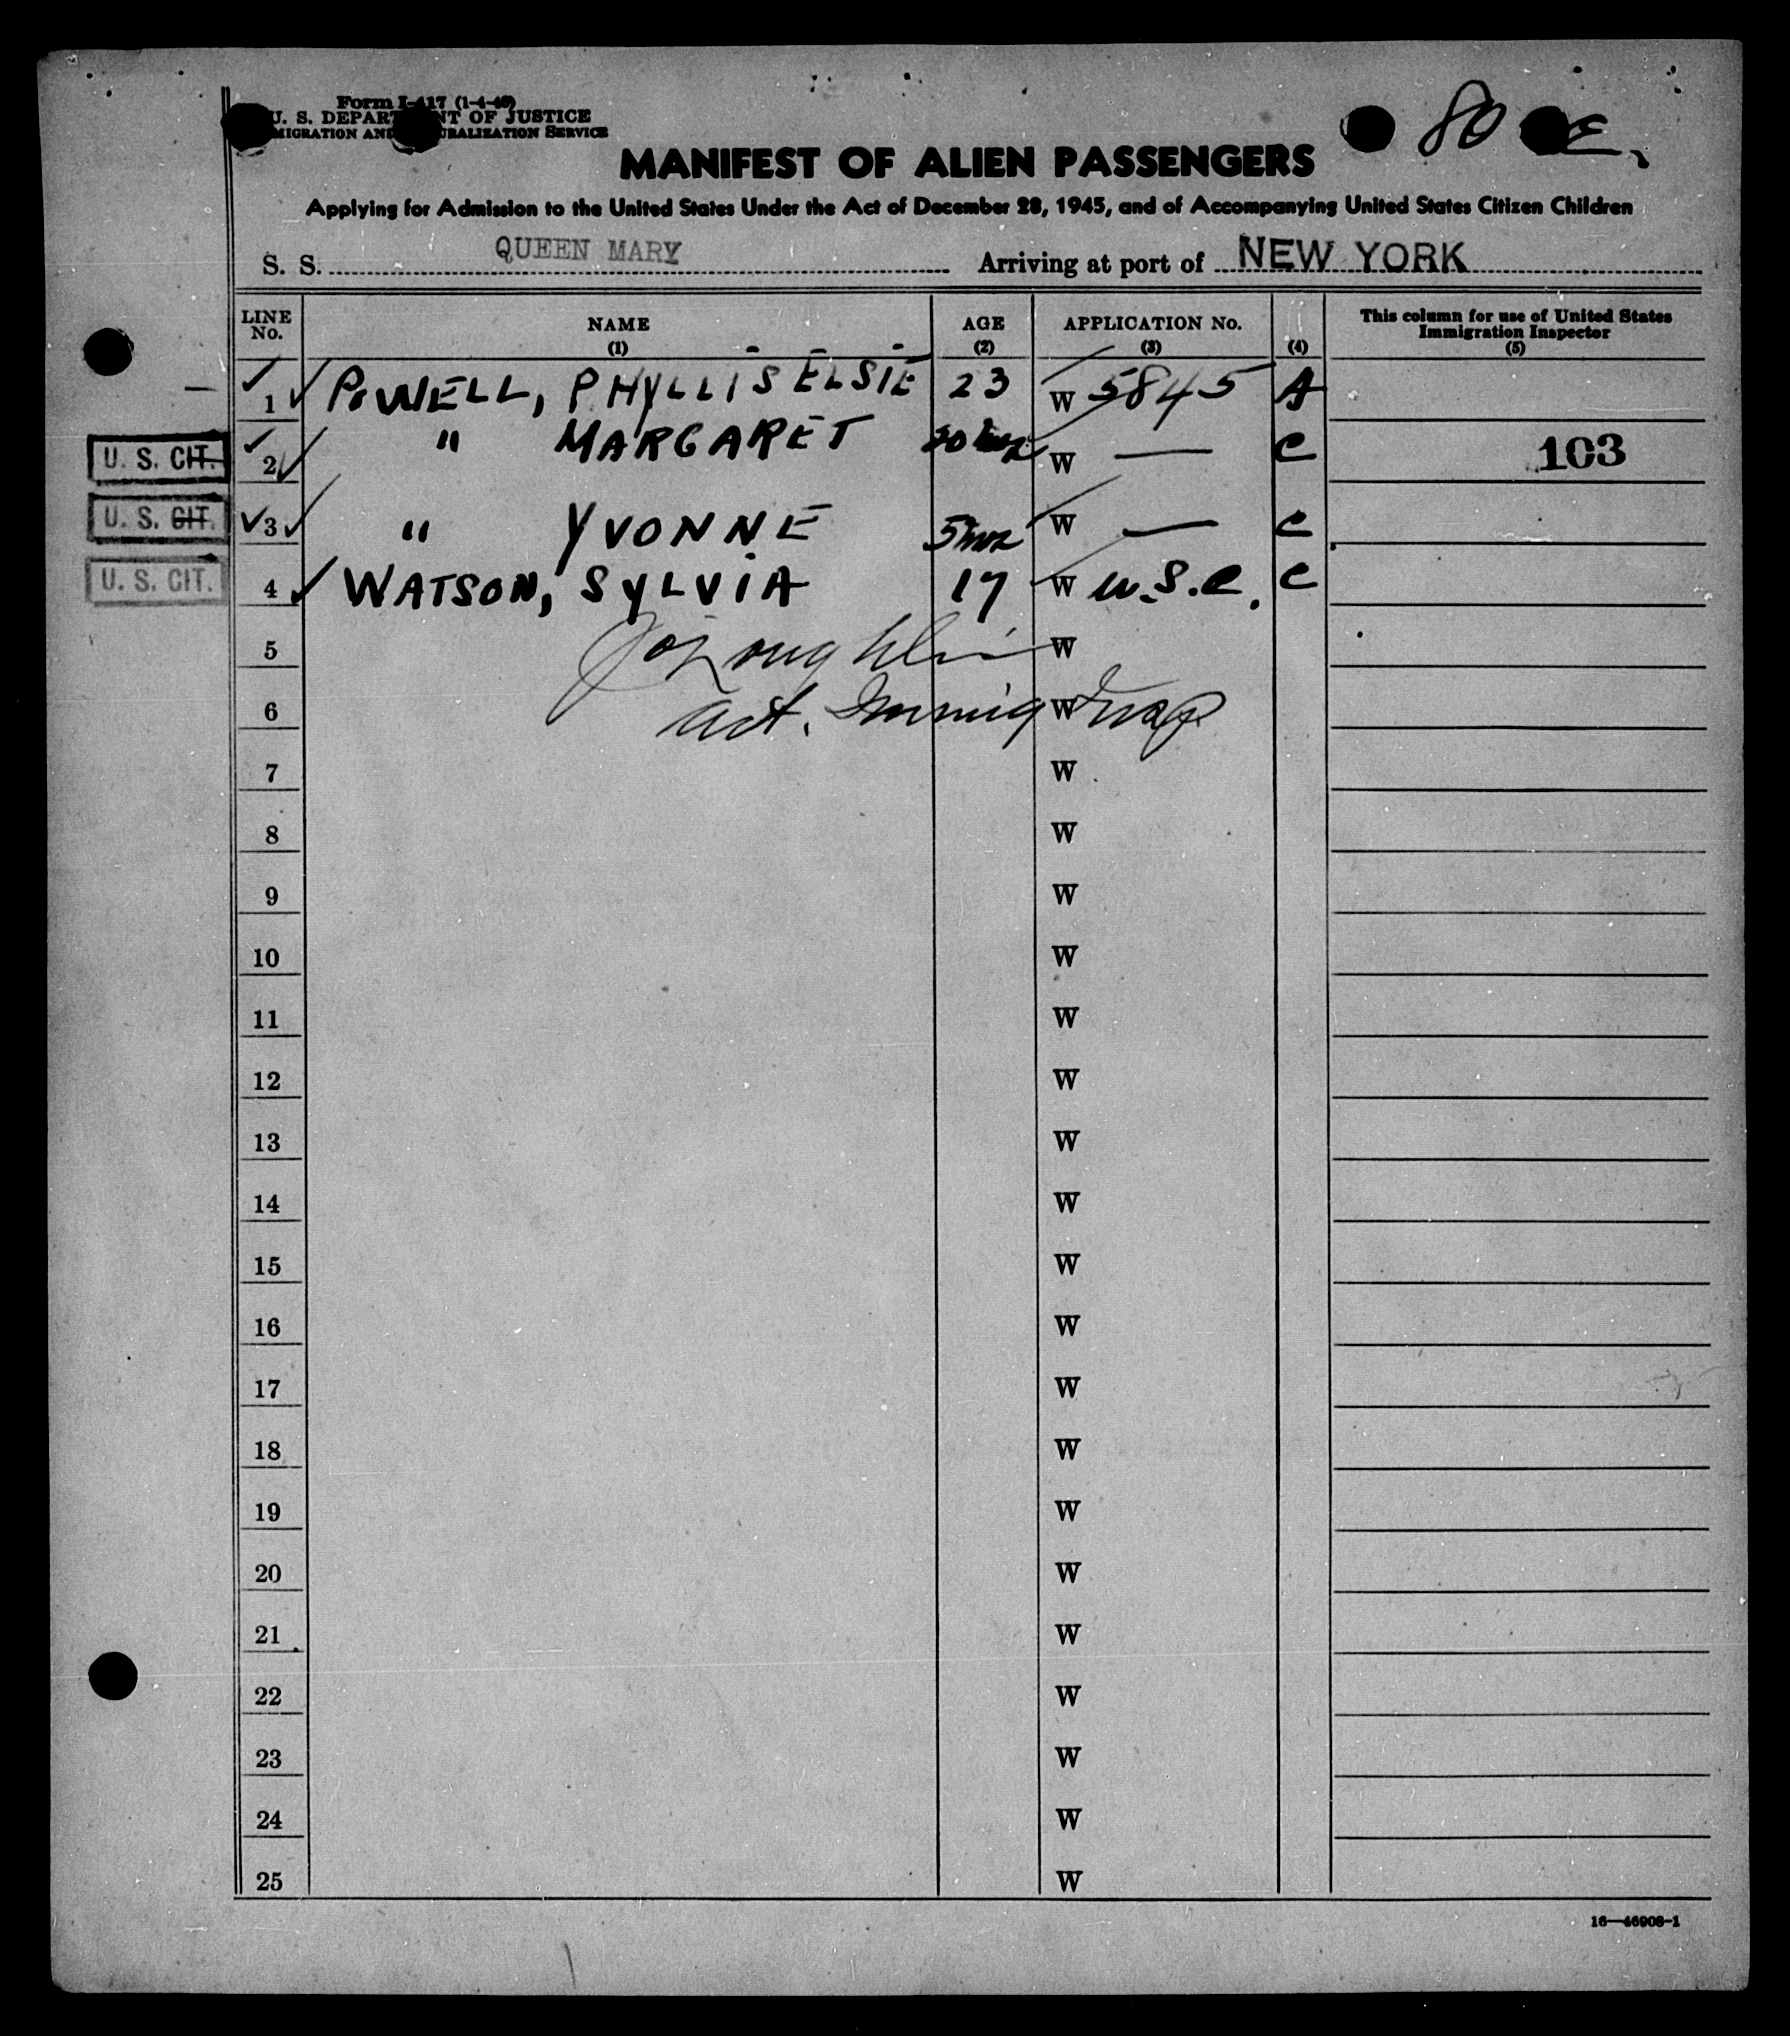 Form I-417 (1-4-46)
U. S. DEPARTMENT OF JUSTICE
IMMIGRATION AND NATURALIZATION SERVICE
80 E.
MANIFEST OF ALIEN PASSENGERS
Applying for Admission to the United States Under the Act of December 28, 1945, and of Accompanying United States Citizen Children
S. S. QUEEN MARY Arriving at port of NEW YORK
LINE No. NAME (1) AGE (2) APPLICATION No. (3) (4) This column for use of United States Immigration Inspector (5)
1 POWELL, PHYLLIS ELSIE 23 W 5845 A
U. S. CIT. 2 " MARGARET W — C 103
U. S. CIT. 3 " YVONNE 5 W — C
U. S. CIT. 4 WATSON, SYLVIA 17 W U.S.C. C
5 W
6 Act. Immig Insp. W
7 W
8 W
9 W
10 W
11 W
12 W
13 W
14 W
15 W
16 W
17 W
18 W
19 W
20 W
21 W
22 W
23 W
24 W
25 W
16—46908-1